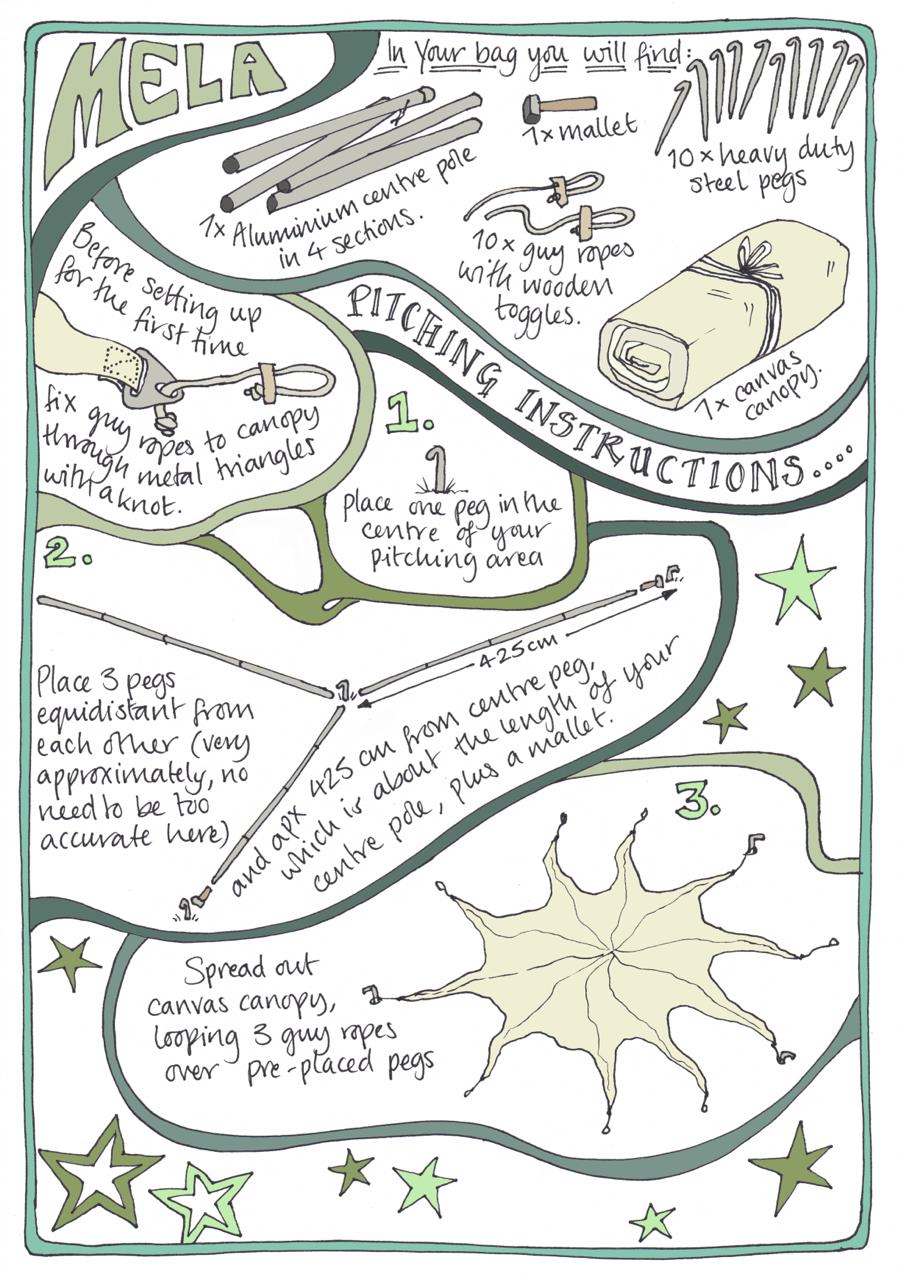 MELA
In Your bag you will find:
1x Aluminium centre pole
in 4 sections.
1x mallet
10 x heavy duty
steel pegs
10x guy ropes
with wooden
toggles.
1x canvas
canopy.
Before setting up
for the first time
fix guy ropes to canopy
through metal triangles
with a knot.
PITCHING INSTRUCTIONS....
1.
Place one peg in the
centre of your
pitching area
2.
425cm
Place 3 pegs
equidistant from
each other (very
approximately, no
need to be too
accurate here)
and apx 425 cm from centre peg,
which is about the length of your
centre pole, plus a mallet.
3.
Spread out
canvas canopy,
looping 3 guy ropes
over pre-placed pegs